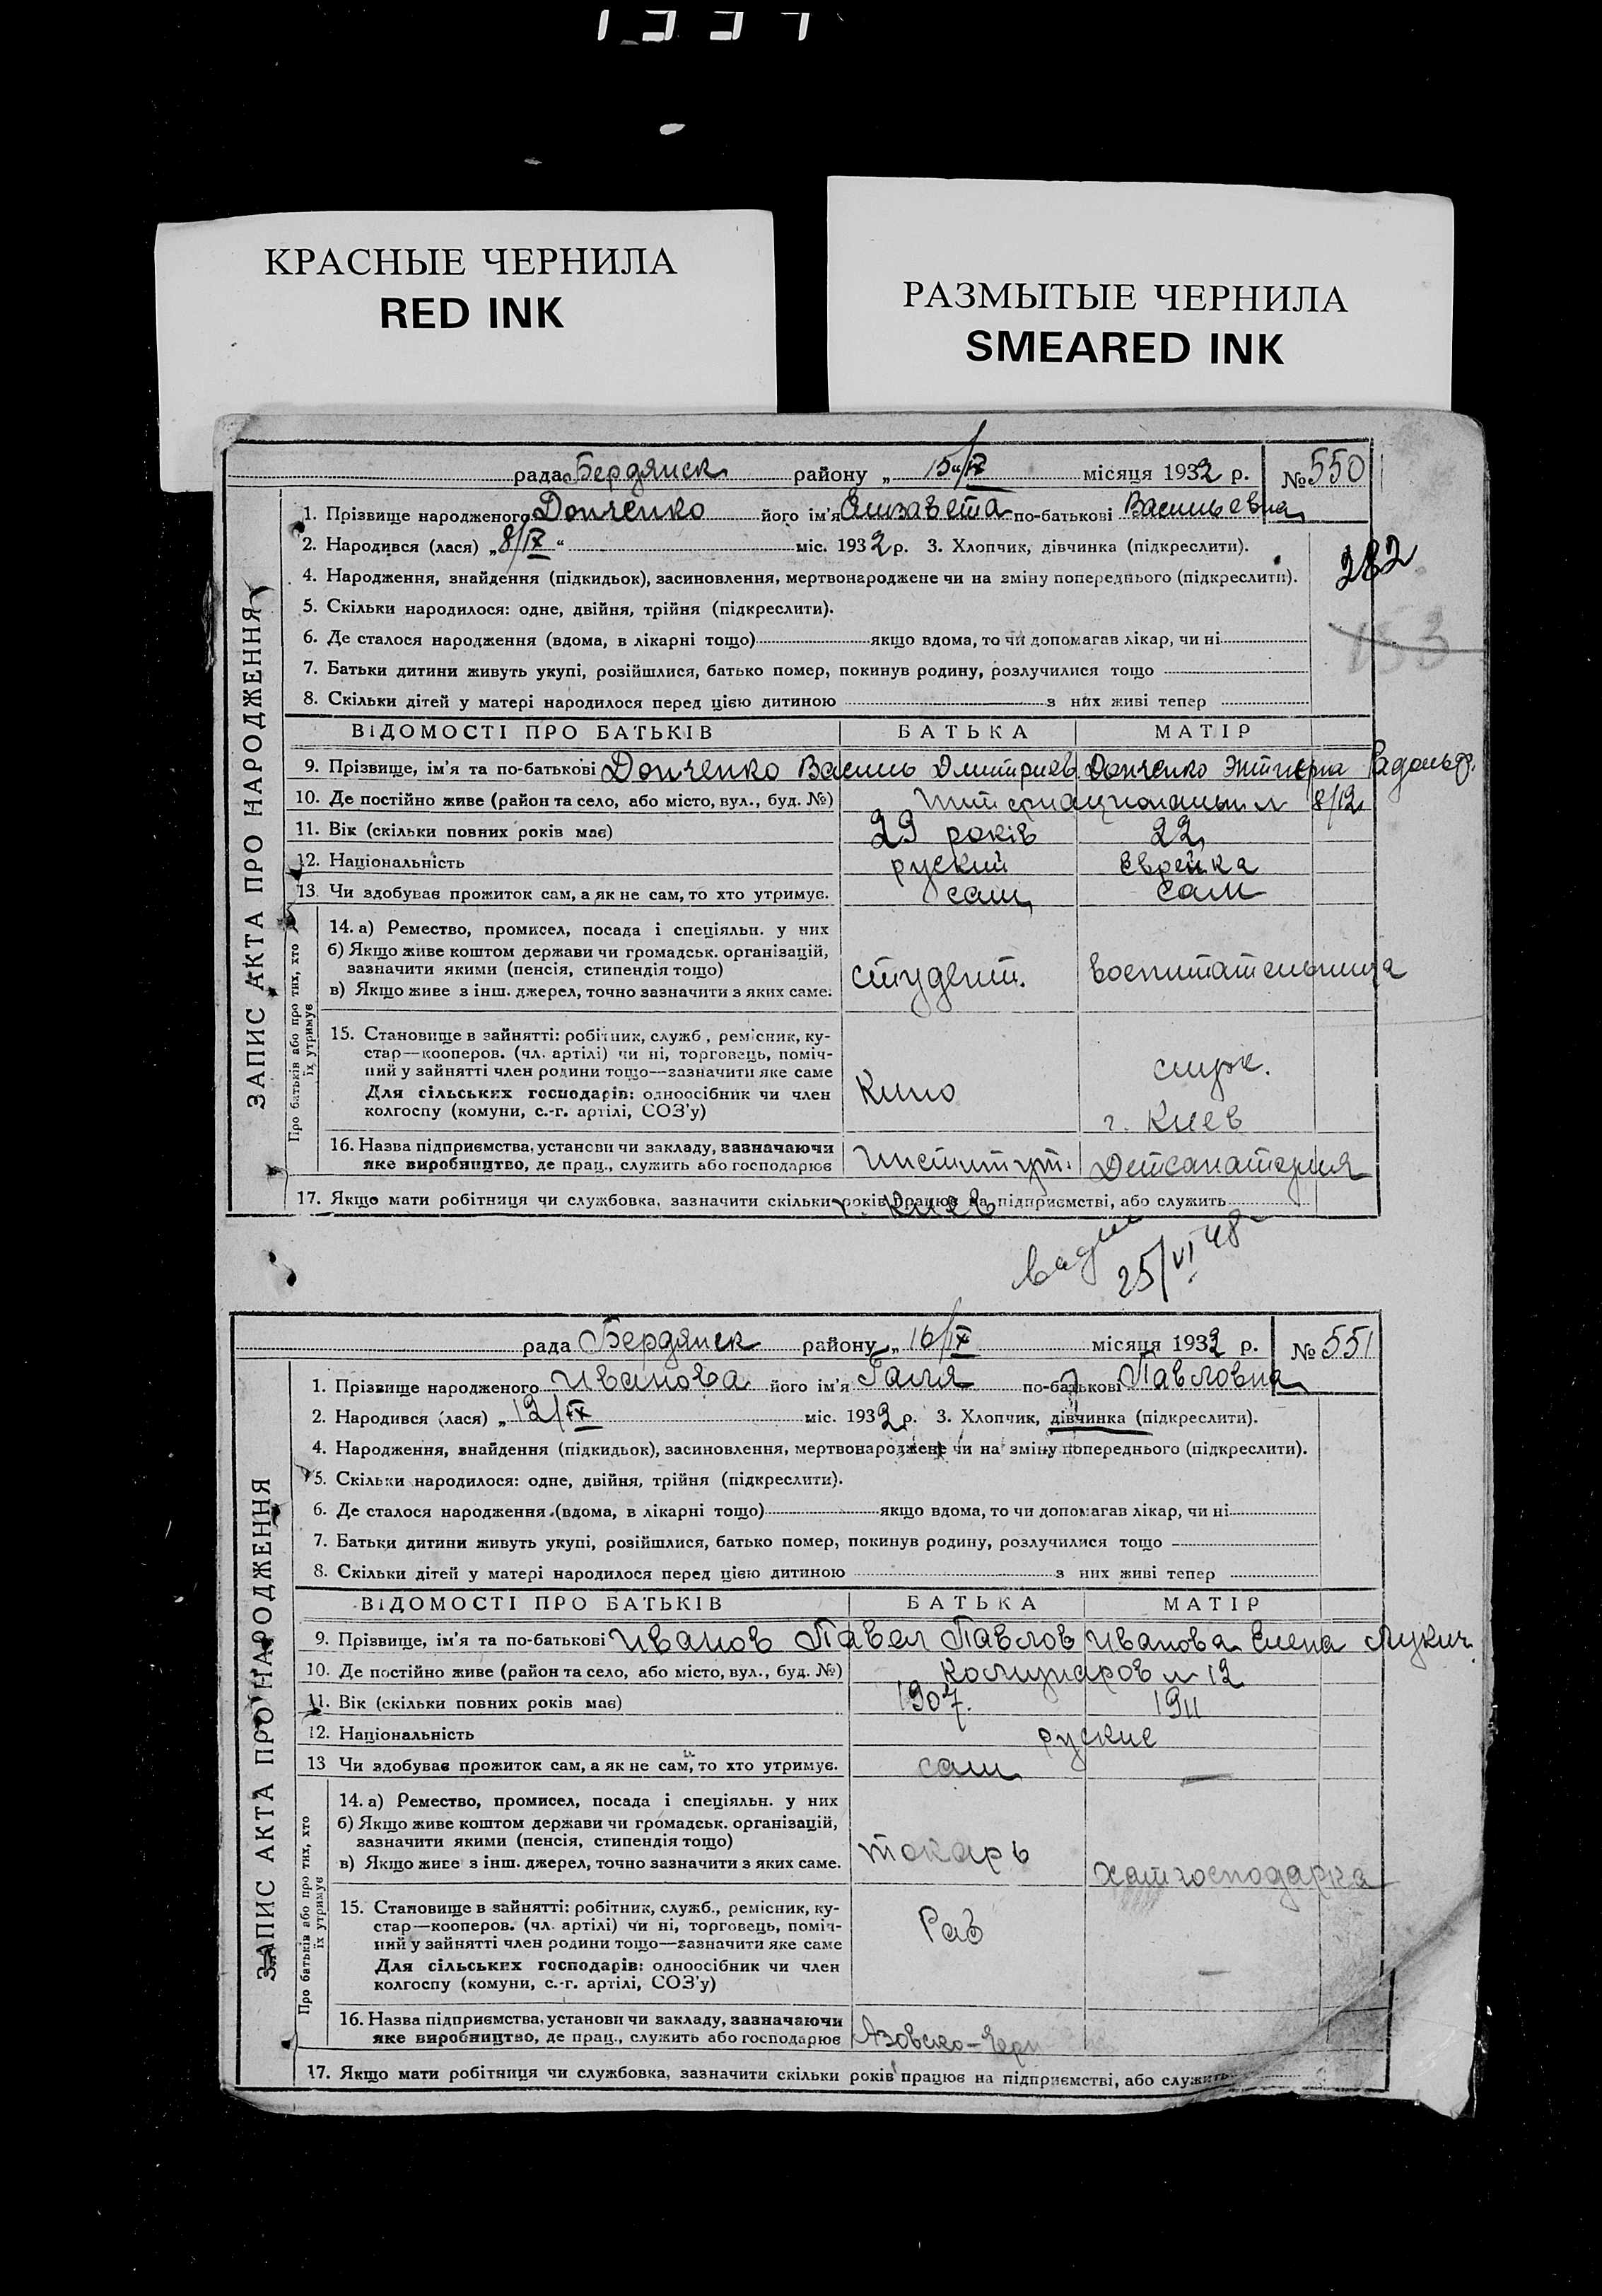 КРАСНЫЕ ЧЕРНИЛА
RED INK
РАЗМЫТЫЕ ЧЕРНИЛА
SMEARED INK
рада Бердянск району „ 15"/IX місяця 1932 р. № 550
ЗАПИС АКТА ПРО НАРОДЖЕННЯ
1. Прізвище народженого Донченко його ім'я Елизавета по-батькові Васильевна
2. Народився (лася) „8/IX“ міс. 1932 р. 3. Хлопчик, дівчинка (підкреслити).
282
4. Народження, знайдення (підкидьок), засиновлення, мертвонароджене чи на зміну попереднього (підкреслити).
5. Скільки народилося: одне, двійня, трійня (підкреслити).
6. Де сталося народження (вдома, в лікарні тощо) якщо вдома, то чи допомагав лікар, чи ні
153
7. Батьки дитини живуть укупі, розійшлися, батько помер, покинув родину, розлучилися тощо
8. Скільки дітей у матері народилося перед цією дитиною з них живі тепер
ВІДОМОСТІ ПРО БАТЬКІВ БАТЬКА МАТІР
9. Прізвище, ім'я та по-батькові Донченко Василь Дмитриев Донченко
10. Де постійно живе (район та село, або місто, вул., буд. №) Интернациональн 8/12
11. Вік (скільки повних років має) 29 років 22
12. Національність руский Еврейка
13. Чи здобуває прожиток сам, а як не сам, то хто утримує. сам сам
Про батьків або про тих, хто їх утримує
14. а) Ремество, промисел, посада і спеціяльн. у них
б) Якщо живе коштом держави чи громадськ. організацій,
зазначити якими (пенсія, стипендія тощо)
в) Якщо живе з інш. джерел, точно зазначити з яких саме.
студент. воспитательница
15. Становище в зайнятті: робітник, служб., ремісник, ку-
стар—кооперов. (чл. артілі) чи ні, торговець, поміч-
ний у зайнятті член родини тощо—зазначити яке саме
Для сільських господарів: одноосібник чи член
колгоспу (комуни, с.-г. артілі, СОЗ'у)
Кино служ.
г. Киев
16. Назва підприємства, установи чи закладу, зазначаючи
яке виробництво, де прац., служить або господарює
Институт. Детсанатория
17. Якщо мати робітниця чи службовка, зазначити скільки років працює на підприємстві, або служить
г. Киев
25/VI 48
рада Бердянск району „ 16/IX місяця 1932 р. № 551
ЗАПИС АКТА ПРО НАРОДЖЕННЯ
1. Прізвище народженого Иванова його ім'я Галя по-батькові Павловна
2. Народився (лася) „12/IX міс. 1932 р. 3. Хлопчик, дівчинка (підкреслити).
4. Народження, знайдення (підкидьок), засиновлення, мертвонароджене чи на зміну попереднього (підкреслити).
5. Скільки народилося: одне, двійня, трійня (підкреслити).
6. Де сталося народження (вдома, в лікарні тощо) якщо вдома, то чи допомагав лікар, чи ні
7. Батьки дитини живуть укупі, розійшлися, батько помер, покинув родину, розлучилися тощо
8. Скільки дітей у матері народилося перед цією дитиною з них живі тепер
ВІДОМОСТІ ПРО БАТЬКІВ БАТЬКА МАТІР
9. Прізвище, ім'я та по-батькові Иванов Павел Павлов Иванова Елена Лукич.
10. Де постійно живе (район та село, або місто, вул., буд. №) Комунаров 12
11. Вік (скільки повних років має) 1907. 1911
12. Національність руские
13 Чи здобуває прожиток сам, а як не сам, то хто утримує. сам —
Про батьків або про тих, хто їх утримує
14. а) Ремество, промисел, посада і спеціяльн. у них
б) Якщо живе коштом держави чи громадськ. організацій,
зазначити якими (пенсія, стипендія тощо)
в) Якщо живе з інш. джерел, точно зазначити з яких саме.
токарь хатгосподарка
15. Становище в зайнятті: робітник, служб., ремісник, ку-
стар—кооперов. (чл. артілі) чи ні, торговець, поміч-
ний у зайнятті член родини тощо—зазначити яке саме
Для сільських господарів: одноосібник чи член
колгоспу (комуни, с.-г. артілі, СОЗ'у)
Раб —
16. Назва підприємства, установи чи закладу, зазначаючи
яке виробництво, де прац., служить або господарює
Азовско-Черн
17. Якщо мати робітниця чи службовка, зазначити скільки років працює на підприємстві, або служить